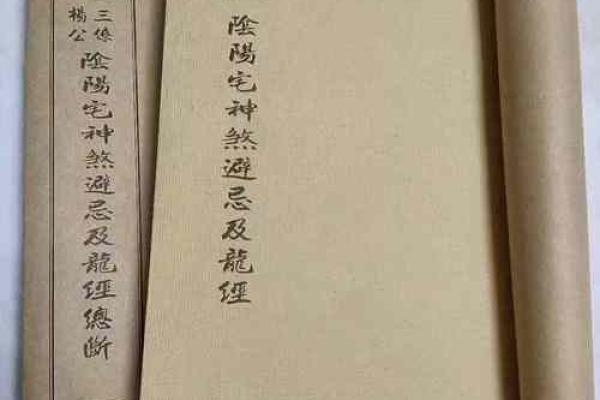 陰陽宅神煞避忌及龍經
三僚
楊公
陰陽宅神煞避忌及龍經總斷